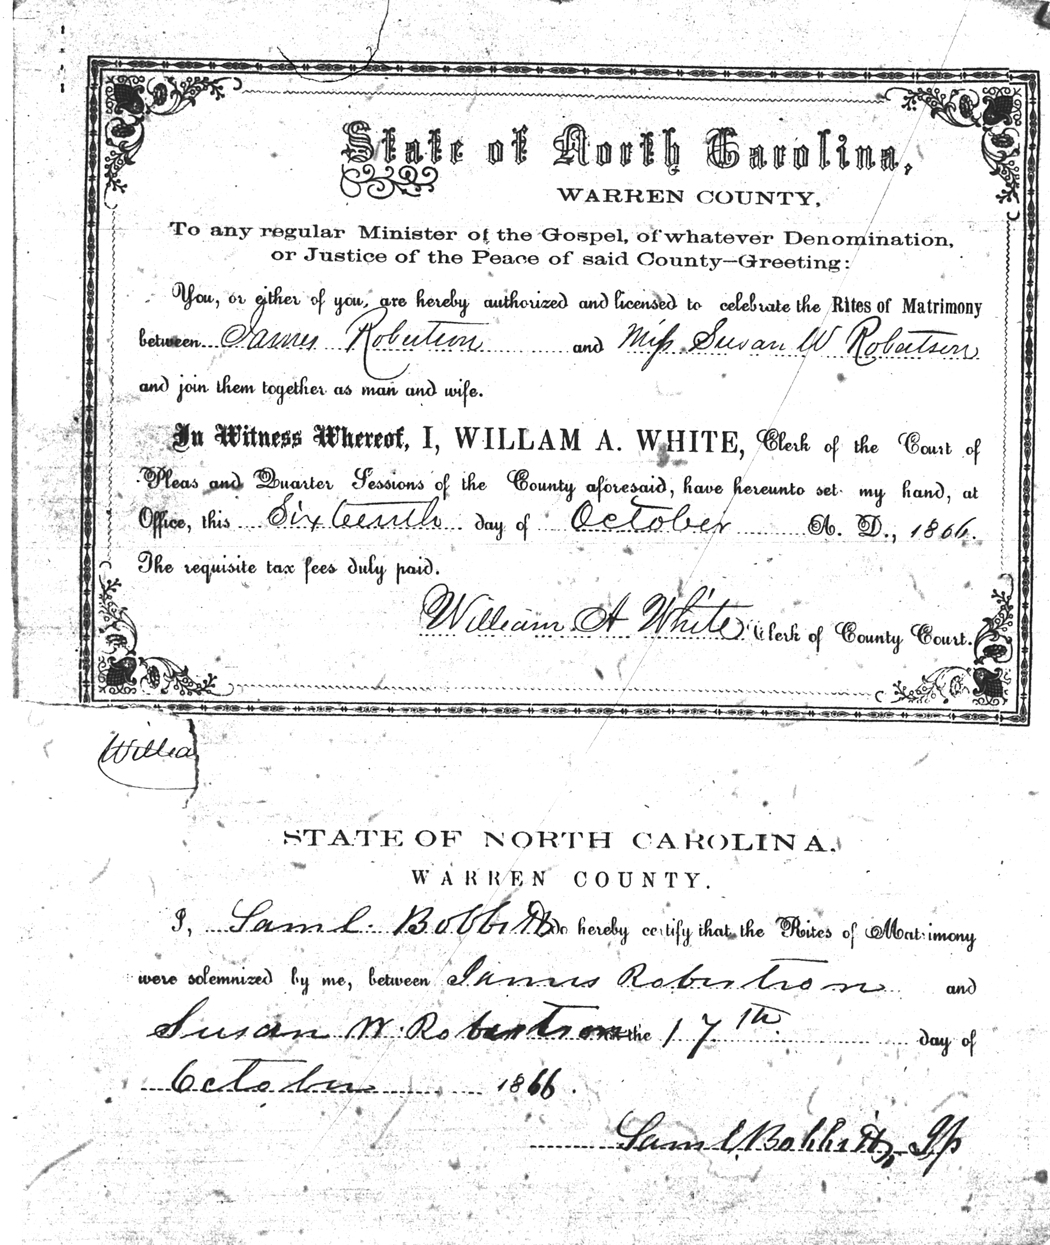 State of North Carolina,
WARREN COUNTY,
To any regular Minister of the Gospel, of whatever Denomination,
or Justice of the Peace of said County—Greeting:
You, or either of you, are hereby authorized and licensed to celebrate the Rites of Matrimony
between James Robertson and Miss Susan W Robertson
and join them together as man and wife.
In Witness Whereof, I, WILLAM A. WHITE, Clerk of the Court of
Pleas and Quarter Sessions of the County aforesaid, have hereunto set my hand, at
Office, this Sixteenth day of October A. D., 1866.
The requisite tax fees duly paid.
William A White Clerk of County Court.
Willia
STATE OF NORTH CAROLINA.
WARREN COUNTY.
I, Saml. Bobbitt do hereby certify that the Rites of Matrimony
were solemnized by me, between James Robertson and
Susan W. Robertson the 17th day of
October 1866.
Saml Bobbitt, Jp